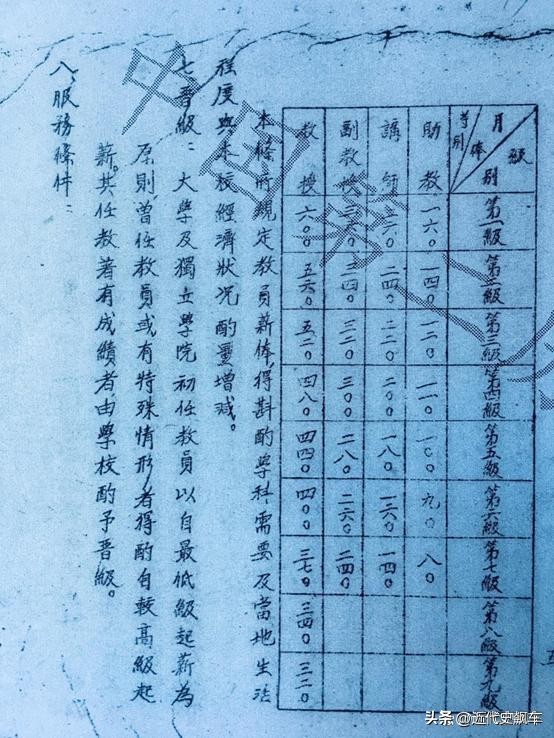 級 月俸別 等別 第一級 第二級 第三級 第四級 第五級 第六級 第七級 第八級 第九級
助教 一六〇 一四〇 一二〇 一一〇 一〇〇 九〇 八〇
講師 二六〇 二四〇 二二〇 二〇〇 一八〇 一六〇 一四〇
副教授 三六〇 三四〇 三二〇 三〇〇 二八〇 二六〇 二四〇
教授 六〇〇 五六〇 五二〇 四八〇 四四〇 四〇〇 三七〇 三四〇 三二〇
本條所規定教員薪俸,得斟酌學科需要及當地生活
程度與本校經濟狀況酌量增減。
七、晋級:大學及獨立學院初任教員以自最低級起薪為
原則,曾任教員或有特殊情形者得酌自較高級起
薪。其任教著有成績者,由學校酌予晋級。
八、服務條件:
头条 @近代史飙车